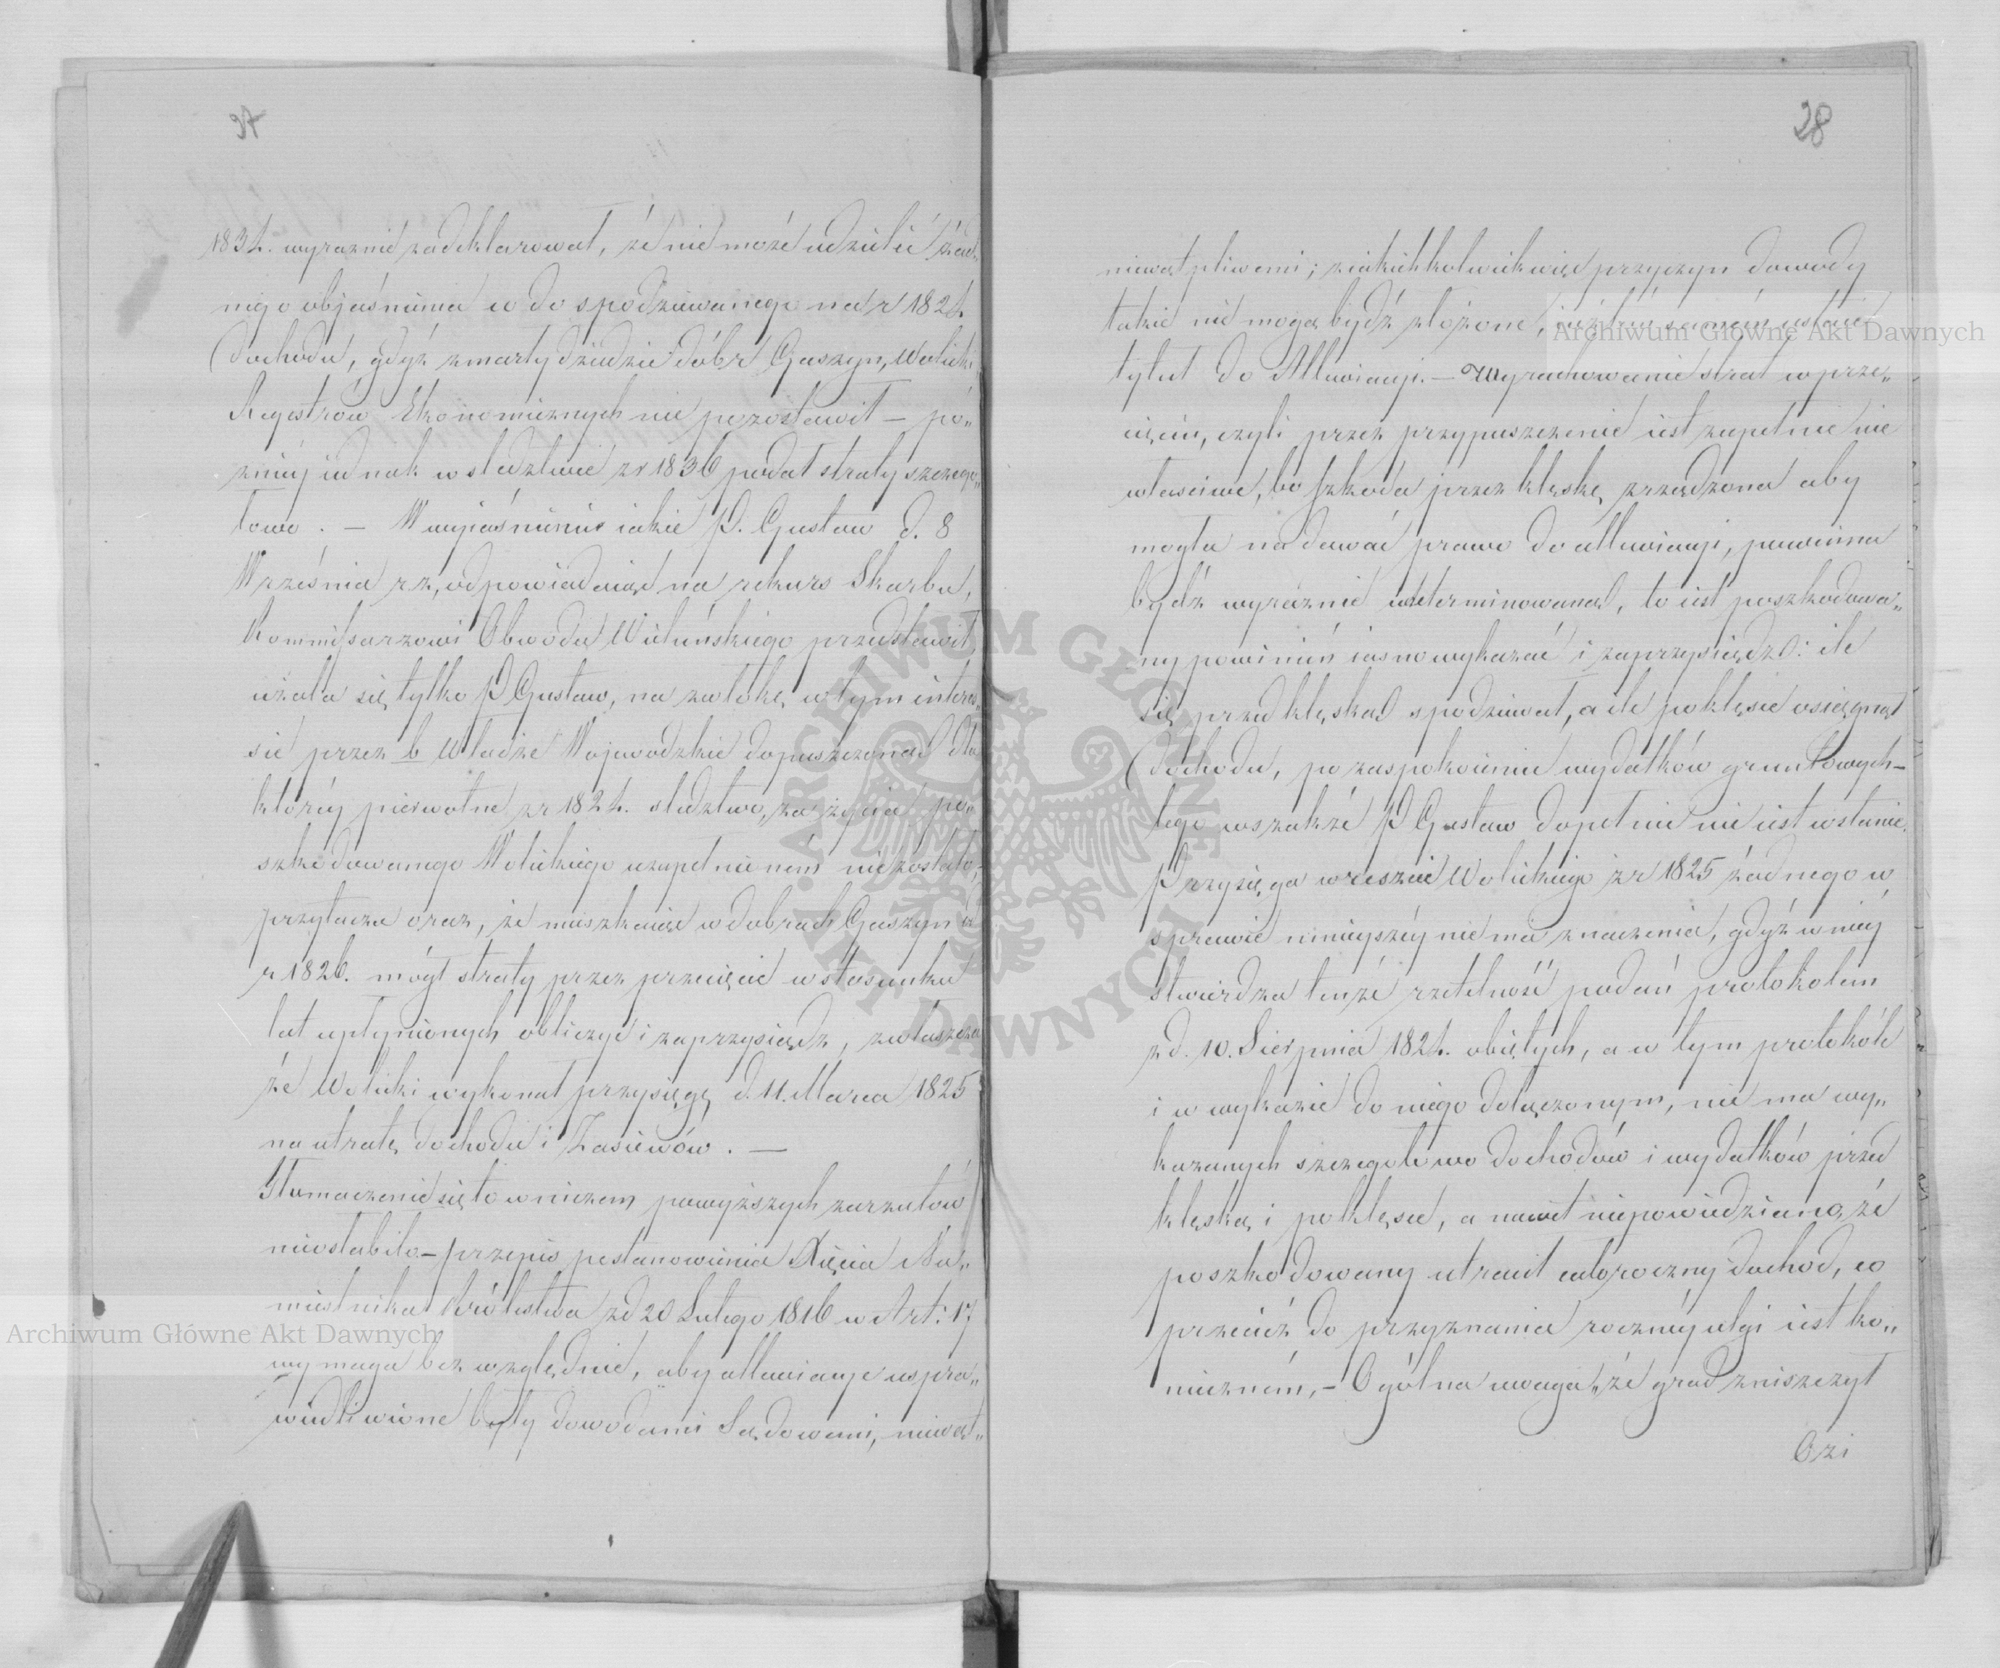 37
1834. wyraznie zadeklarował, że nie może udzielić żad„
nego objaśnienia co do spodziewanego na r 1824
dochodu, gdyż zmarły dziedzic dóbr Gaszyn, Wolicki
Regestrów Ekonomicznych nie pozostawił — pó„
zniej iednak w sledztwie zr 1836 podał straty szczegó„
łowo. — W wyiaśnieniu iakie P. Gustaw d. 8
Września r z, odpowiadaiąc na rekurs Skarbu,
Kommissarzowi Obwodu Wieluńskiego przedstawił,
użala się tylko P Gustaw, na zwłokę w tym intere„
sie przez b Władze Wojewodzkie dopuszczoną dla
któréy pierwotne zr 1824. sledztwo, za życia po„
szkodowanego Wolickiego uzupełnionem nie zostało,
przytacza oraz, że mieszkaiąc w dobrach Gaszyn od
r 1826. mógł straty przez przecięcie w stosunku
lat upłynionych obliczyć i zaprzysiądz, zwłaszcza
że Wolicki wykonał przysięgę d. 11. Marca 1825
na utratę dochodu i Zasiewów. —
Tłomaczenie się to w niczem powyższych zarzutów
nieosłabiło — przepis postanowienia Xięcia Na„
miestnika Królestwa zd 20 Lutego 1816 w Art: 17
wymaga bezwzględnie, aby alluwiacye uspra„
wiedliwione były dowodami Sądowemi, niewąt„
28
niewątpliwemi; z iakichkolwiek więc przyczyn dowody
takie nie mogą bydź złożone, iuż
tytuł do Alluwiacyi. — Wyrachowanie strat w prze„
cięciu, czyli przez przypuszczenie iest zupełnie nie
właściwe, bo szkoda przez klęskę zrządzona aby
mogła nadawać prawo do alluwiacyi, powinna
bydź wyraznie udeterminowaną, to iest poszkodowa„
ny powinień iasno wykazać i zaprzysiędz: ile
się przed klęską spodziewał, a ile po klęsce osiągnął
dochodu, po zaspokoieniu wydatków gruntowych —
tego wszakże P Gustaw dopełnić nie iest w stanie.
Przysięga wreszcie Wolickiego zr 1825 żadnego w
sprawie ninieyszéy nie ma znaczenia, gdyż w niéy
stwierdza tenże rzetelność podań protokołem
zd. 10. Sierpnia 1824. obiętych, a w tym protokóle
i w wykazie do niego dołączonym, nie ma wy„
kazanych szczegółowo dochodów i wydatków przed
klęską i po klęsce, a nawet niepowiedziano, że
poszkodowany utracił całoroczny dochod, co
przecież do przyznania rocznéy ulgi iest ko„
nieczném, — Ogólna uwaga, że grad zniszczył
Ozi
Archiwum Główne Akt Dawnych
Archiwum Główne Akt Dawnych
ARCHIWUM GŁÓWNE AKT DAWNYCH